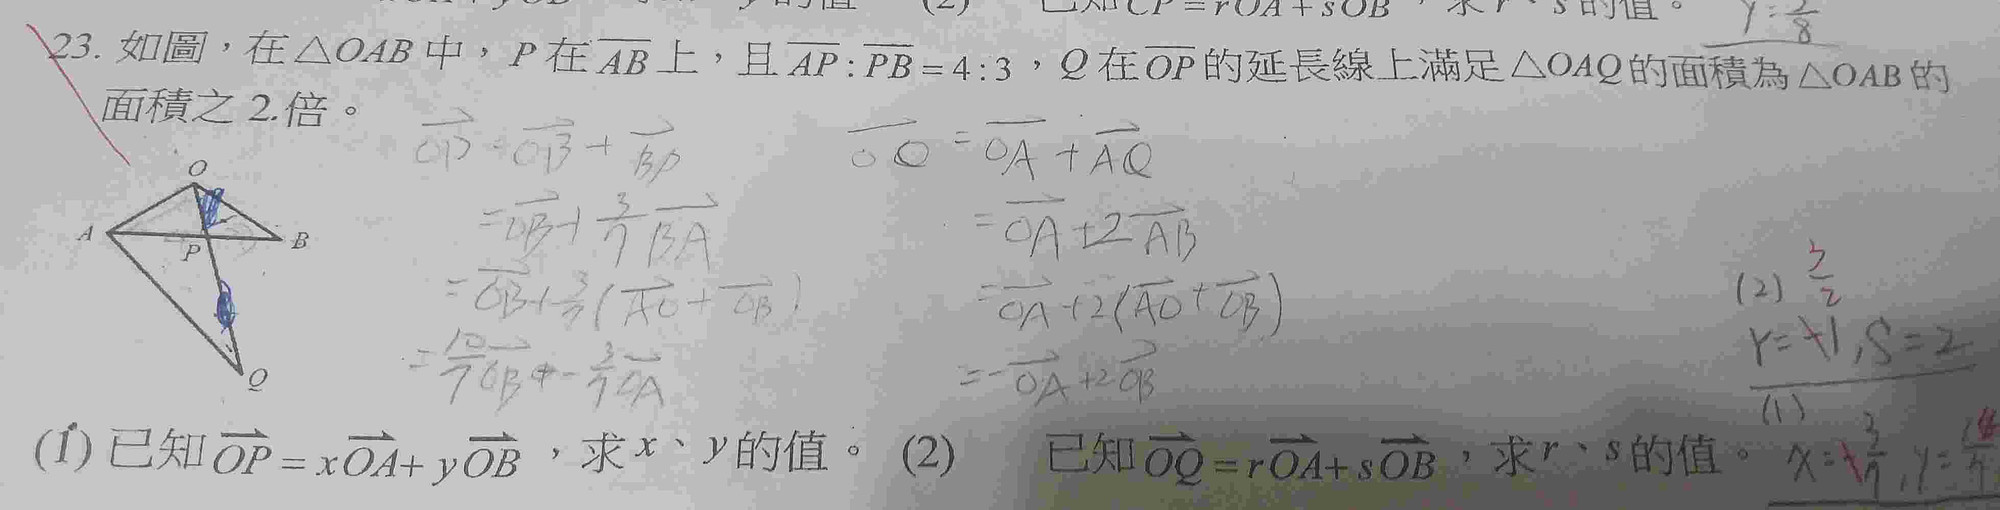 (2) 已知CP=rOA+sOB，求r、s的值。
23. 如圖，在△OAB中，P在AB上，且AP:PB=4:3，Q在OP的延長線上滿足△OAQ的面積為△OAB的
面積之2.倍。
OP=OB+BP
=OB+3/7BA
=OB+3/7(AO+OB)
=10/7OB-3/7OA
OQ=OA+AQ
=OA+2AB
=OA+2(AO+OB)
=-OA+2OB
O
A
P
B
Q
(2)
r=1,s=2
(1)
(1) 已知OP=xOA+yOB，求x、y的值。 (2) 已知OQ=rOA+sOB，求r、s的值。